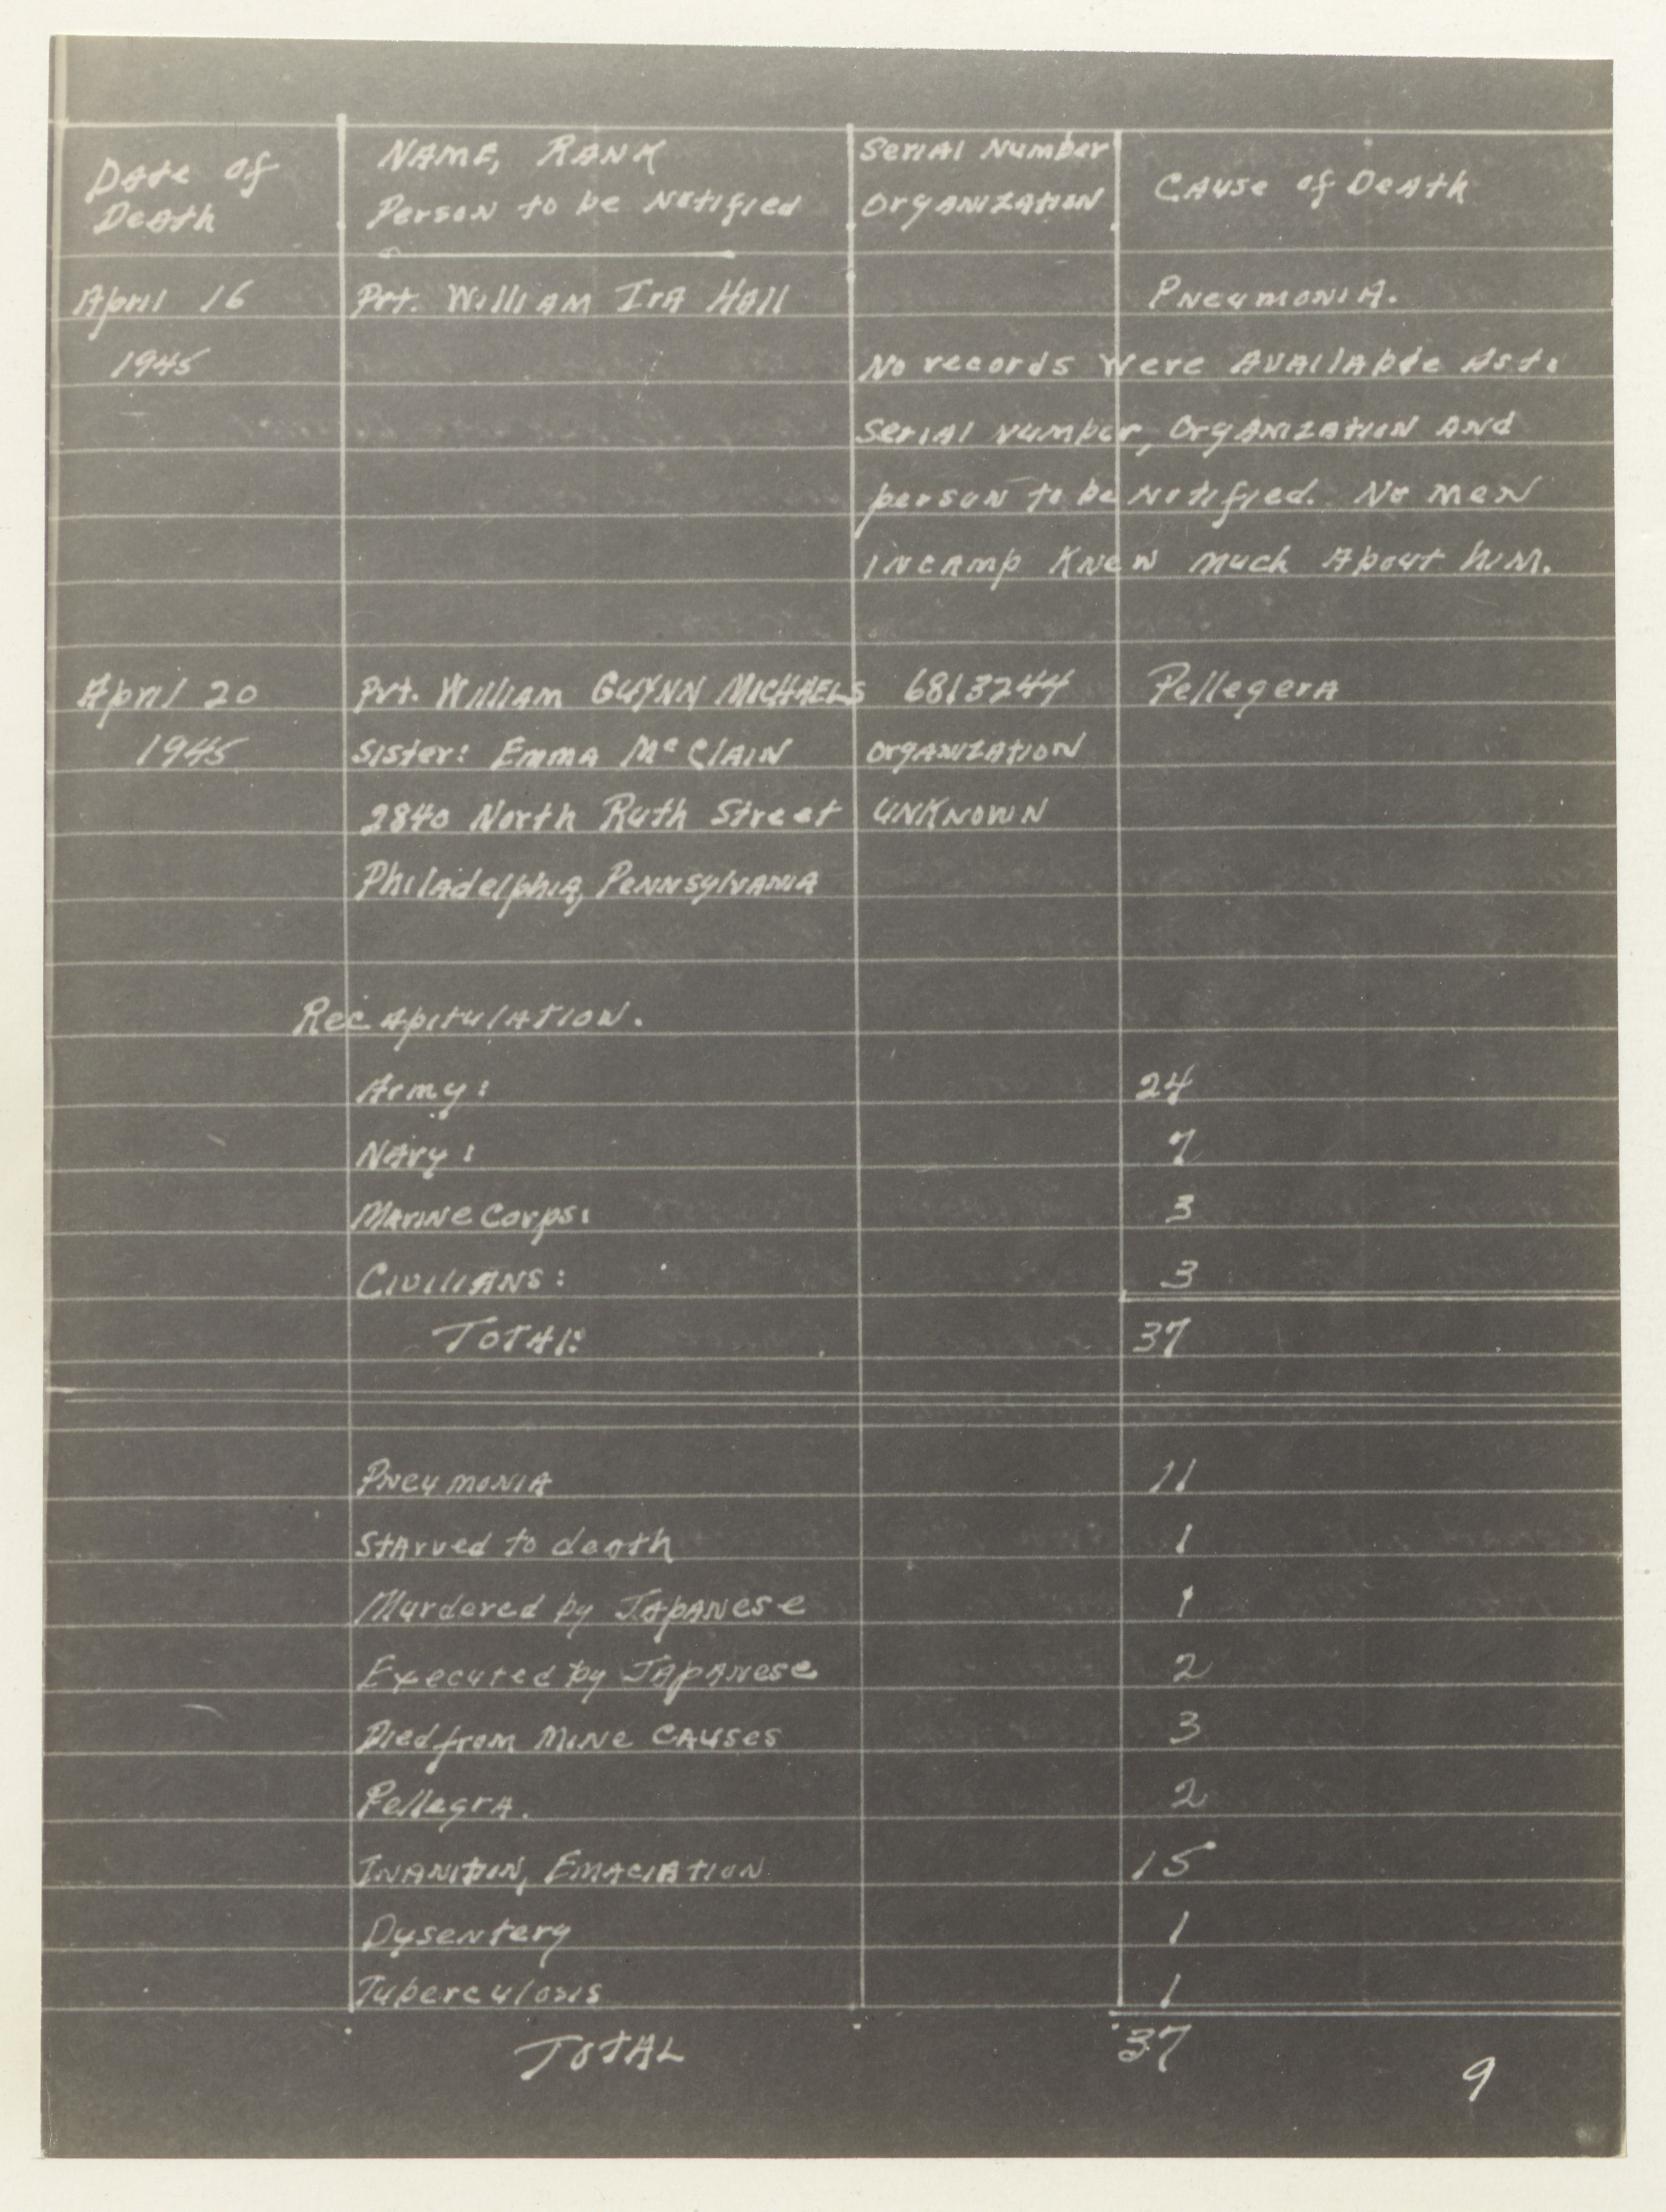 Date of Death | NAME, RANK Person to be Notified | Serial Number Organization | Cause of Death
April 16 | Pvt. William Ira Hall | Pneumonia.
1945 | No records were available as t.
Serial number, Organization and
person to be notified. No men
in camp knew much about him.
April 20 | Pvt. William GUYNN MICHAELS | 6813244 | Pellegera
1945 | Sister: Emma McClain | Organization
2840 North Ruth Street | UNKNOWN
Philadelphia, Pennsylvania
Recapitulation.
Army: 24
Navy: 7
Marine Corps: 3
Civilians: 3
Total: 37
Pneumonia 11
Starved to death 1
Murdered by Japanese 1
Executed by Japanese 2
Died from Mine Causes 3
Pellagra. 2
Inanition, Emaciation 15
Dysentery 1
Tuberculosis 1
TOTAL 37
9